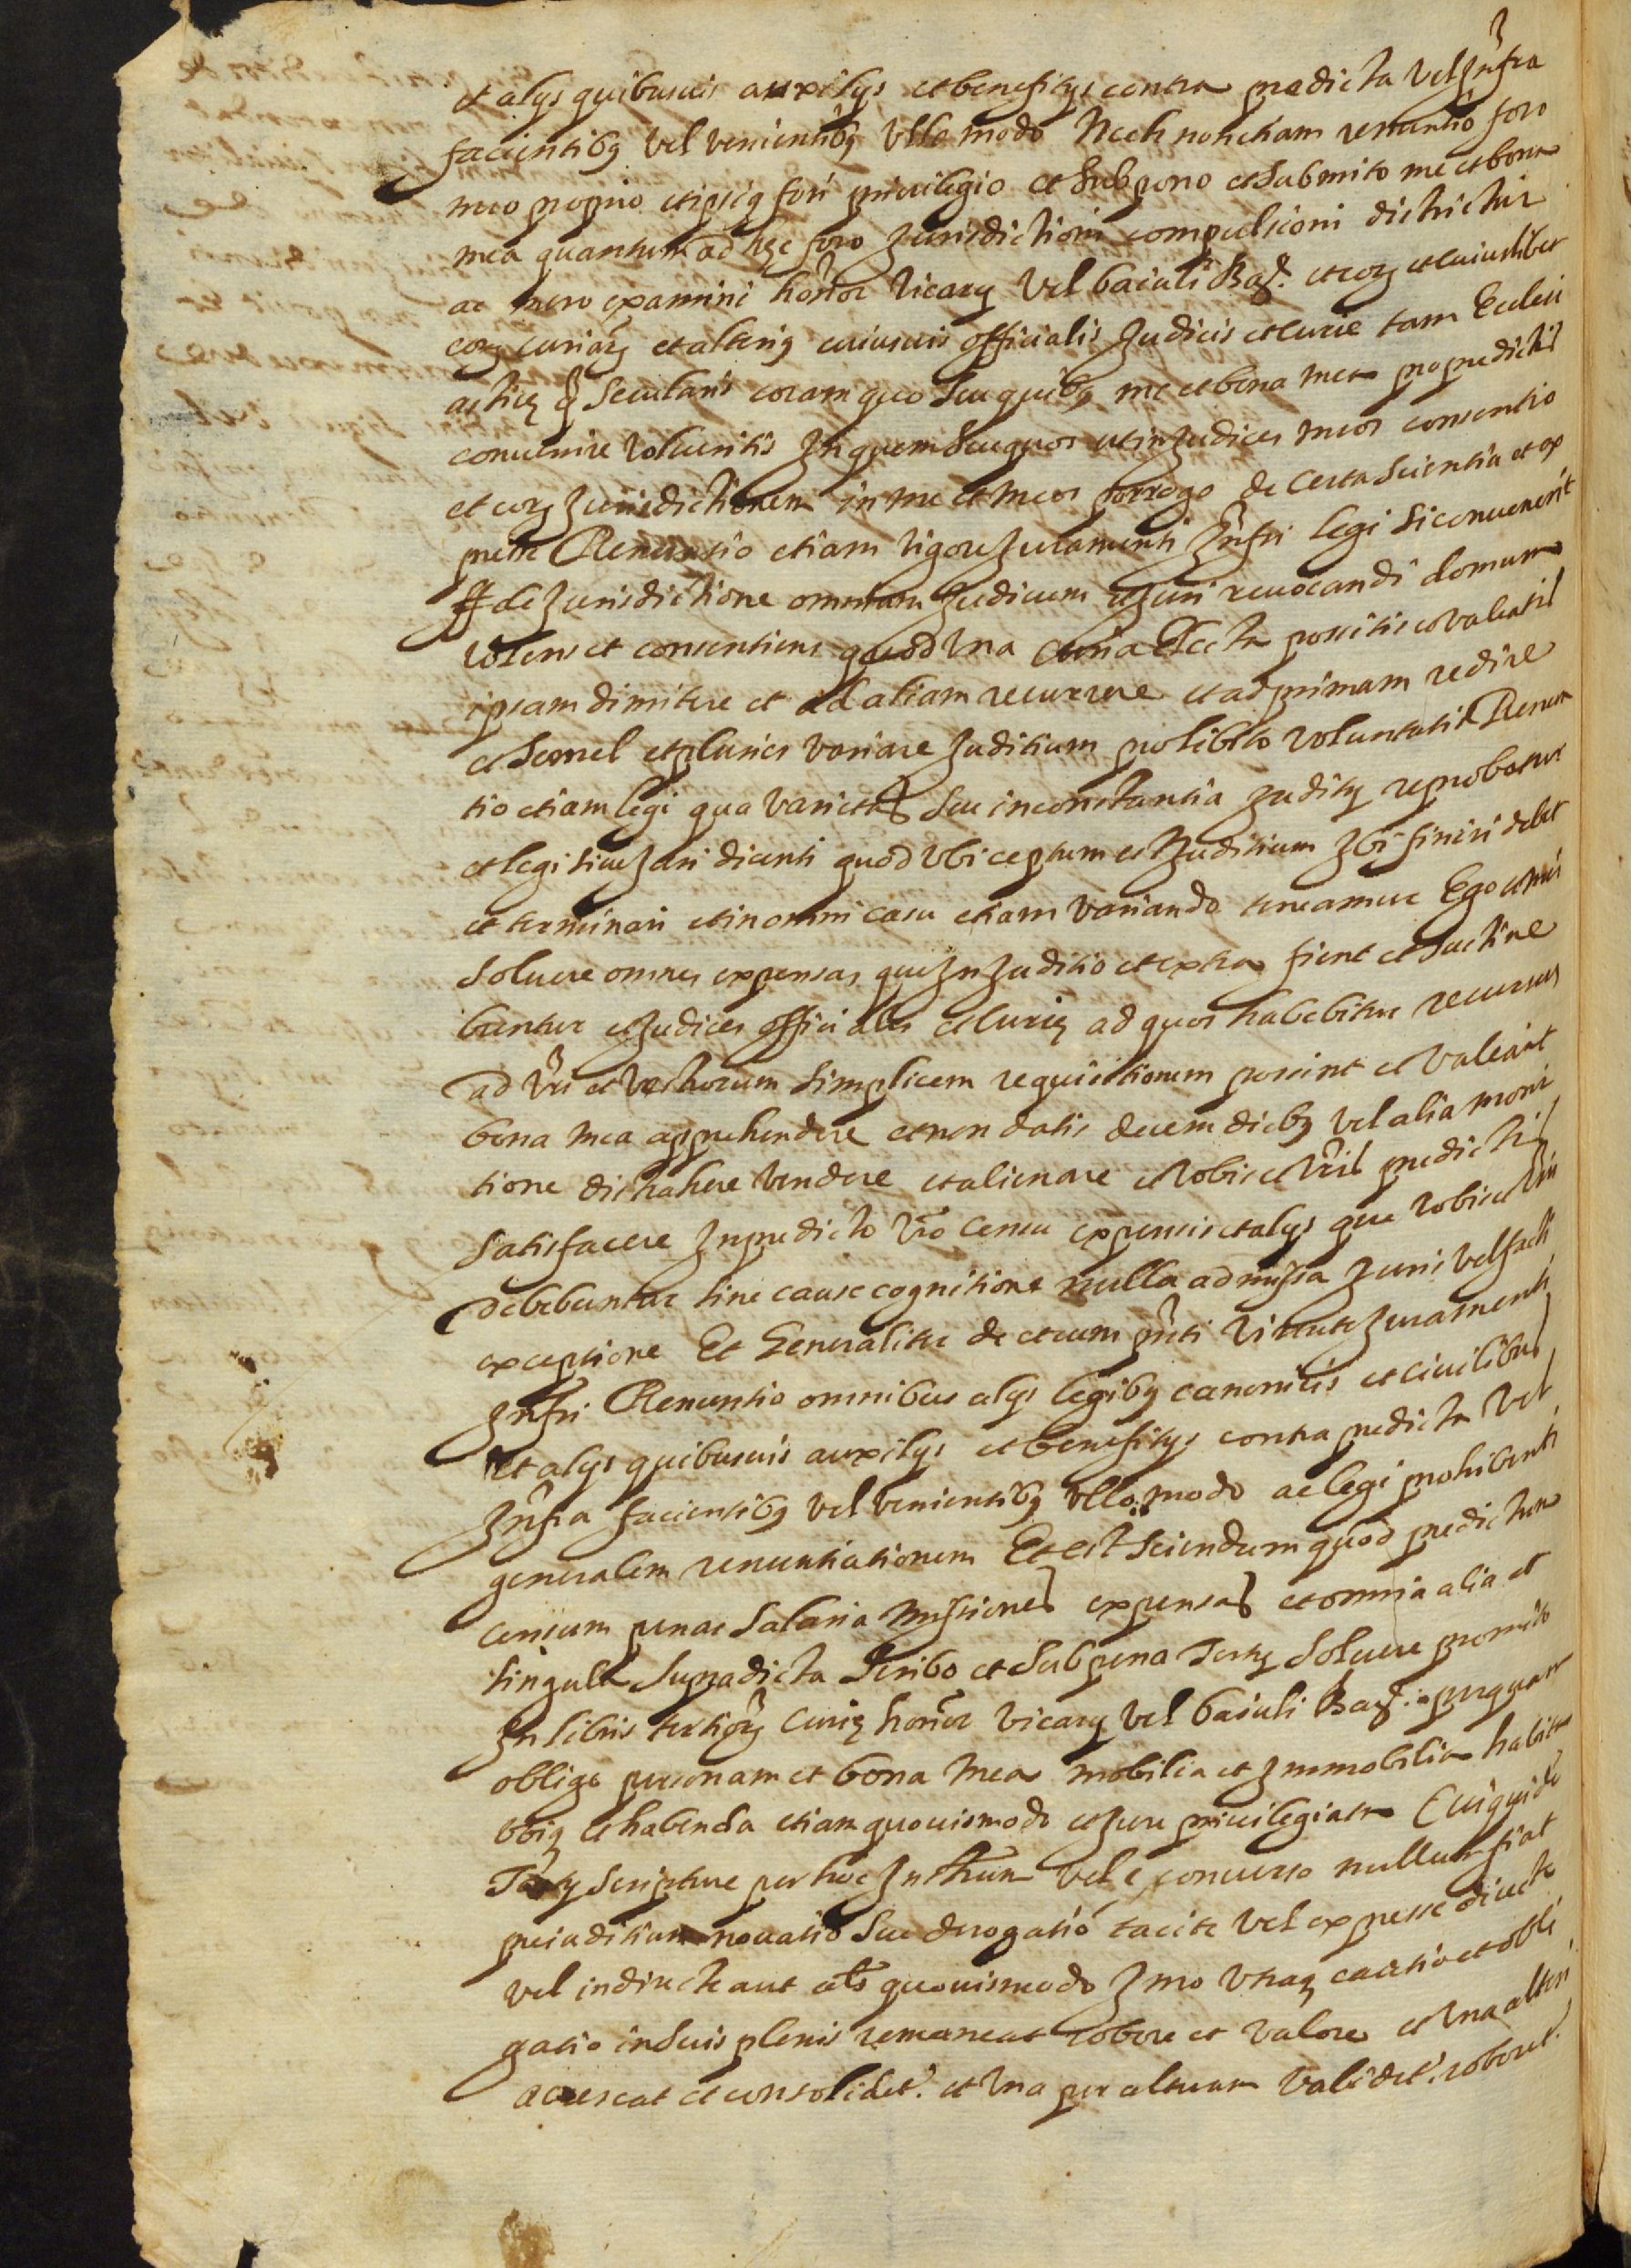 et alys quibusuis auxilys et benefitys contra predicta vel Infra
facientibq vel venientibq vllo modo Necte non etiam renuntio foro
meo proprio et ipsiq fori priuilegio et Subpono et Submito me et bona
mea quantum ad hec foro Jurisdictioni compulsioni districtui
ac mero examini honor Vicary vel baiuli Barȷ. et eorz et cuiuslibet
eorz curiarz et alteriq cuiusuis officialis Judicis et curie tam Eclesi
astice q Secularis coram quo Seu quibq me et bona mea pro predictis
conuenire volueritis In quem Seu quos ut in Judices meos consentio
et eorz Jurisdictionem in me et meos porrogo de Certa Scientia et ex
presse Renuntio etiam vigore Juramenti Infri legi Si conuenerit
ff de Jurisdictione omnium Judicum et Juri reuocandi domum
volens et consentiens quod Vna curia electa possitis et valeatis
ipsam dimitere et ad aliam recurrere et ad primam redire
et Semel et pluries variare Juditium pro libito voluntatis Renun
tio etiam legi qua varietas Seu inconstantia Judity reprobatur
et legi siue Juri dicenti quod vbi ceptum est Juditium Ibi finiri debet
et terminari et in omni casu etiam variando teneamur Ego et mei
Soluere omnes expensas que In Juditio et extra fient et Sustine
buntur et Judices officiales et curie ad quos habebitur recursus
ad vri et vestrorum Simplicem requisitionem possint et valeant
bona mea apprehendere et non datis decem diebq vel alia moni
tione distrahere vendere et alienare et vobis et vris predictis
Satisfacere In predicto vro censu expensis et alys que vobis et vris
debebuntur sine cause cognitione nulla admissa Juris vel facti
exceptione Et Generaliter de et cum pnti virtute Juramenti
Infri Renuntio omnibus alys legibq canonicis et ciuilibus
et alys quibusuis auxilys et benefitys contra predicta vel
Infra facientibq vel venientibq vllo modo ac legi prohibenti
generalem renuntiationem Et est Sciendum quod predictum
censum penas Salaria missiones expensas et omnia alia et
singula Supradicta Scribo et Sub pena Terty Soluere promito
In libris tertiorz Curie honor vicary vel baiuli Barȷ. per quam
obligo personam et bona mea mobilia et Immobilia habita
vbiq et habenda etiam quouis modo et Jure priuilegiata Cui quidem
Terty Scripture per hoc Instrum vel e conuerso nullum fiat
preiuditium nouatio Seu derogatio tacite vel expresse directe
vel indirecte aut als quouis modo Imo vtraq cautio et obli
gatio in Suis plenis remaneat robore et valore et Vna alteri
acrescat et consolidet. et Vna per alteram validet. roboret.